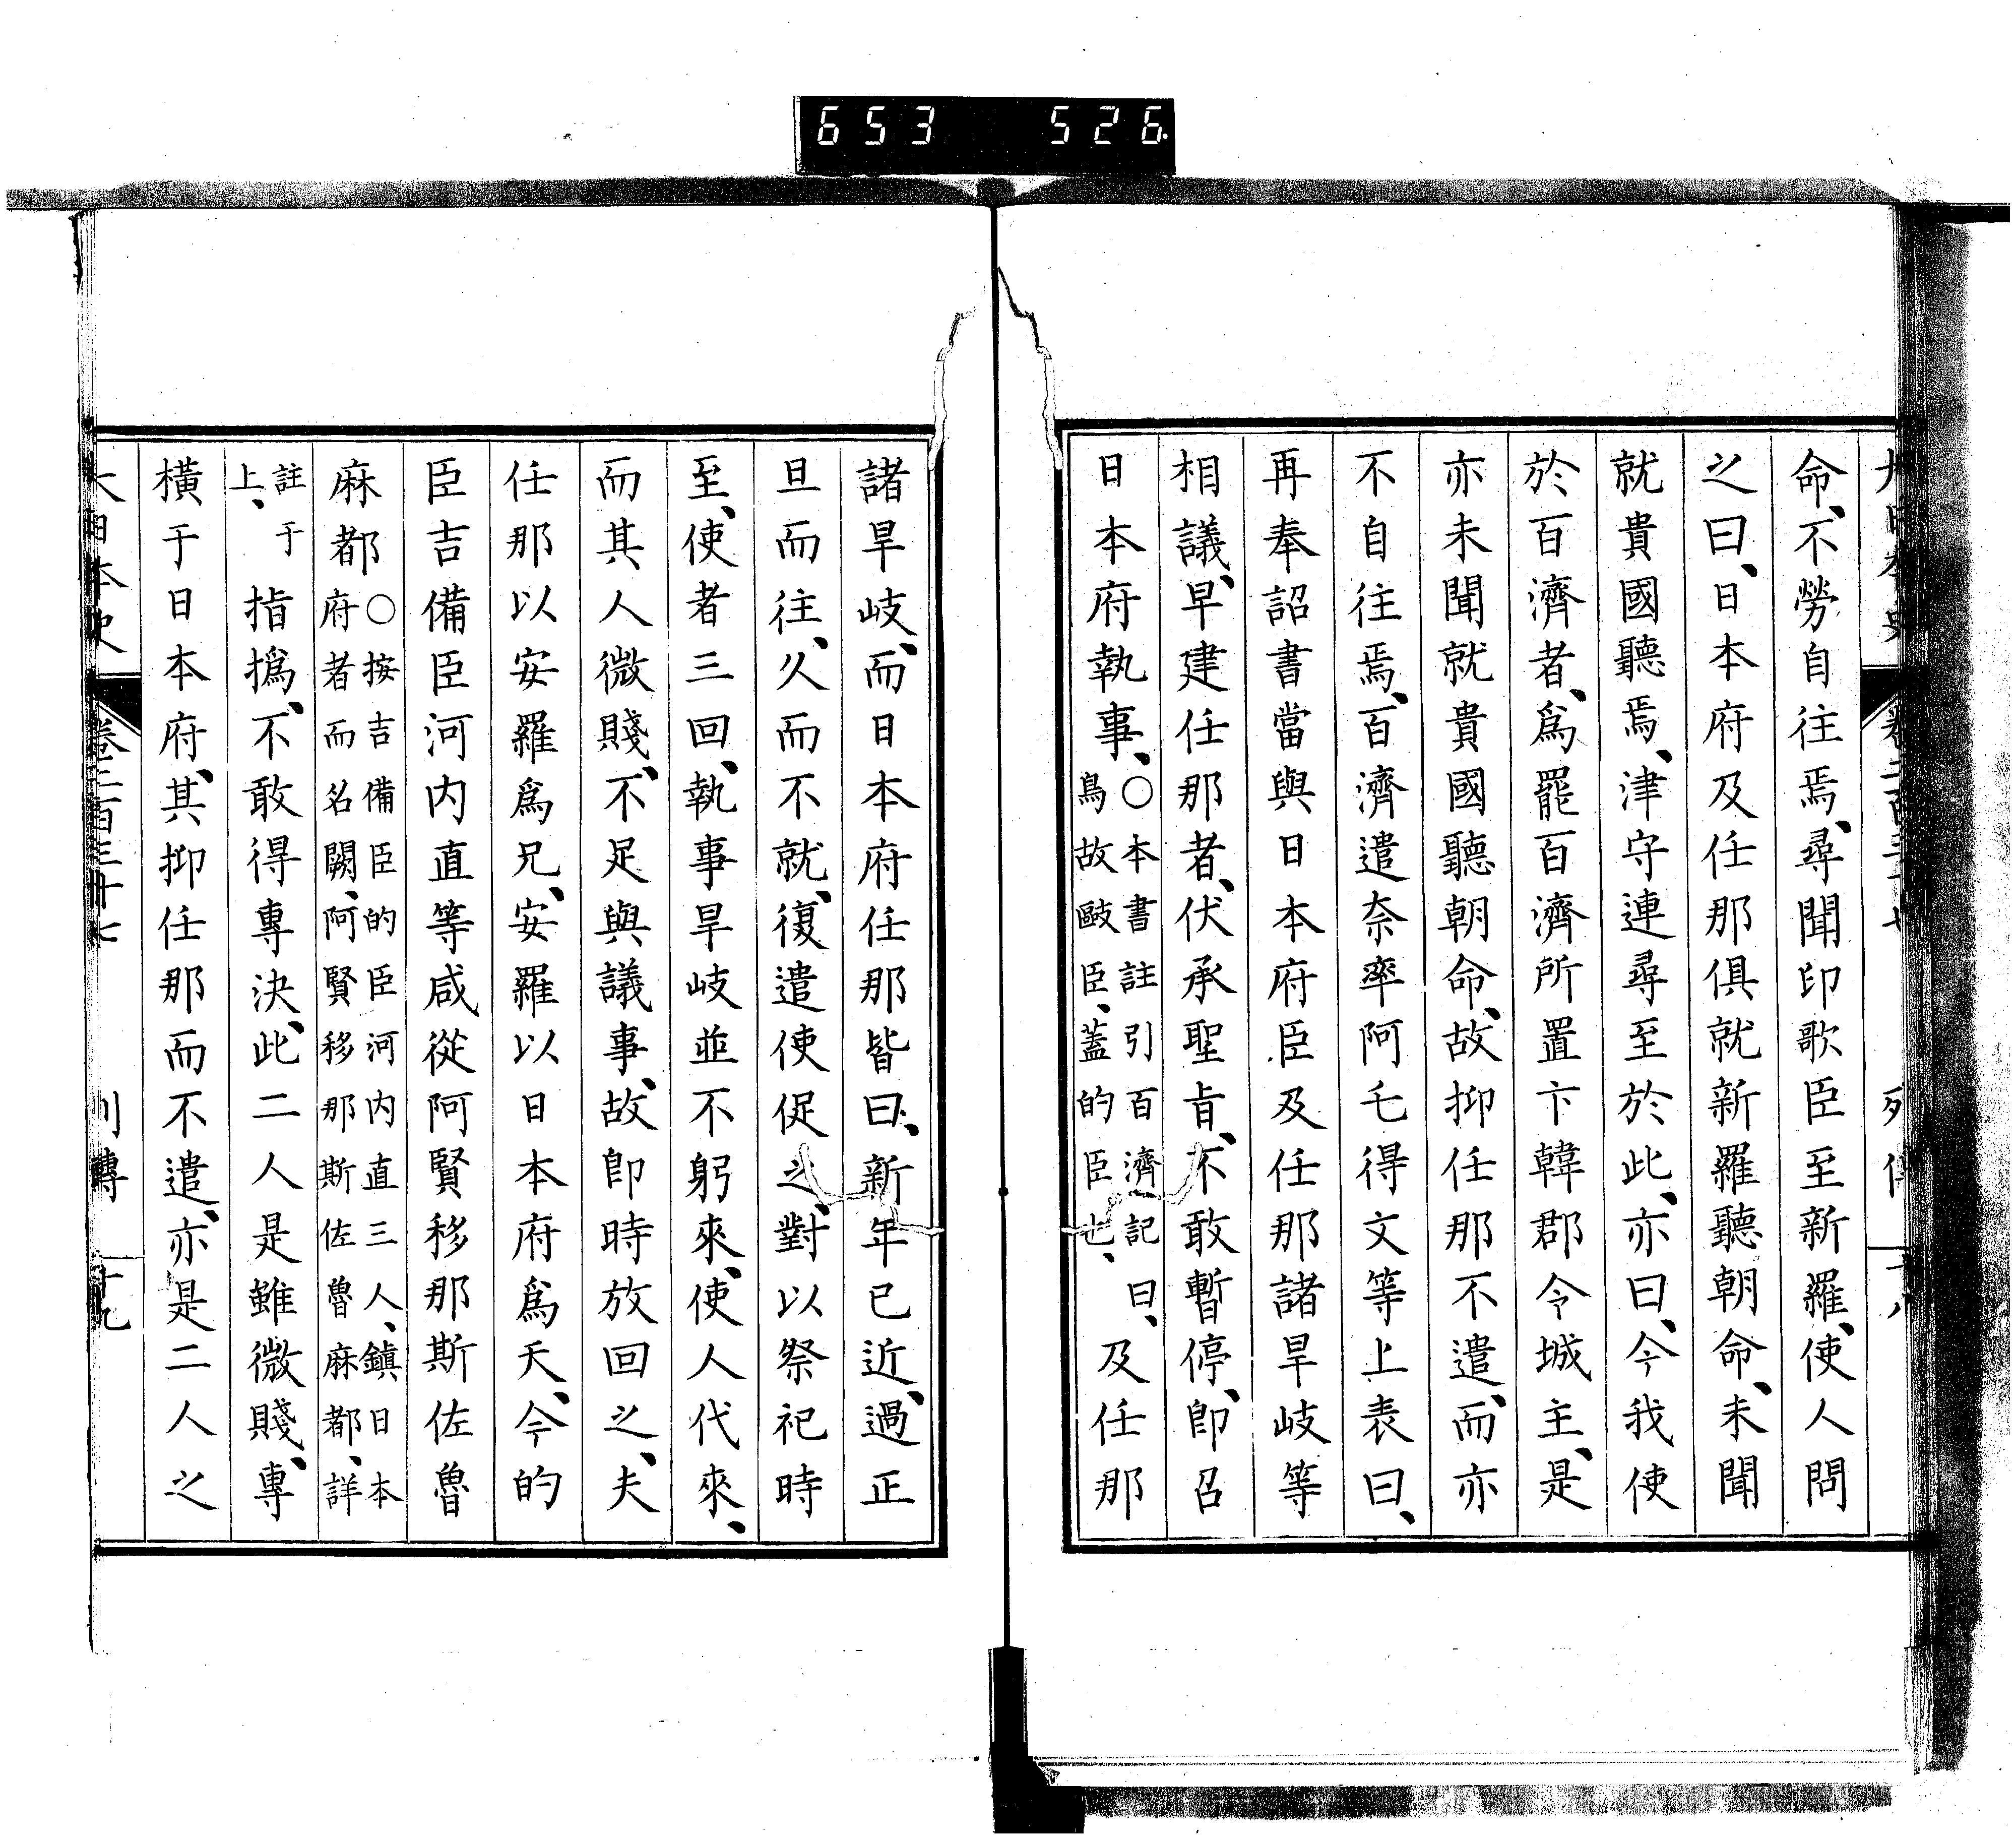 653 526
命、不勞自往焉、尋聞印歌臣至新羅、使人問
之曰、日本府及任那俱就新羅聽朝命、未聞
就貴國聽焉、津守連尋至於此、亦曰、今我使
於百濟者、爲罷百濟所置下韓郡令城主、是
亦未聞就貴國聽朝命、故抑任那不遣、而亦
不自往焉、百濟遣奈率阿乇得文等上表曰、
再奉詔書當與日本府臣及任那諸旱岐等
相議、早建任那者、伏承聖旨、不敢暫停、卽召
日本府執事、○本書註引百濟記曰、
烏故歐臣、蓋的臣也、
及任那
諸旱岐、而日本府任那皆曰、新年已近、過正
旦而往、久而不就、復遣使促之、對以祭祀時
至、使者三回、執事旱岐並不躬來、使人代來、
而其人微賤、不足與議事、故卽時放回之、夫
任那以安羅爲兄、安羅以日本府爲天、今的
臣吉備臣河内直等咸從阿賢移那斯佐魯
麻都○按吉備臣的臣河内直三人、鎭日本
府者而名闕、阿賢移那斯佐魯麻都、詳
註于
上、
指撝、不敢得專決、此二人是雖微賤、專
橫于日本府、其抑任那而不遣、亦是二人之
大日本史 卷二百三十七 列傳 十九